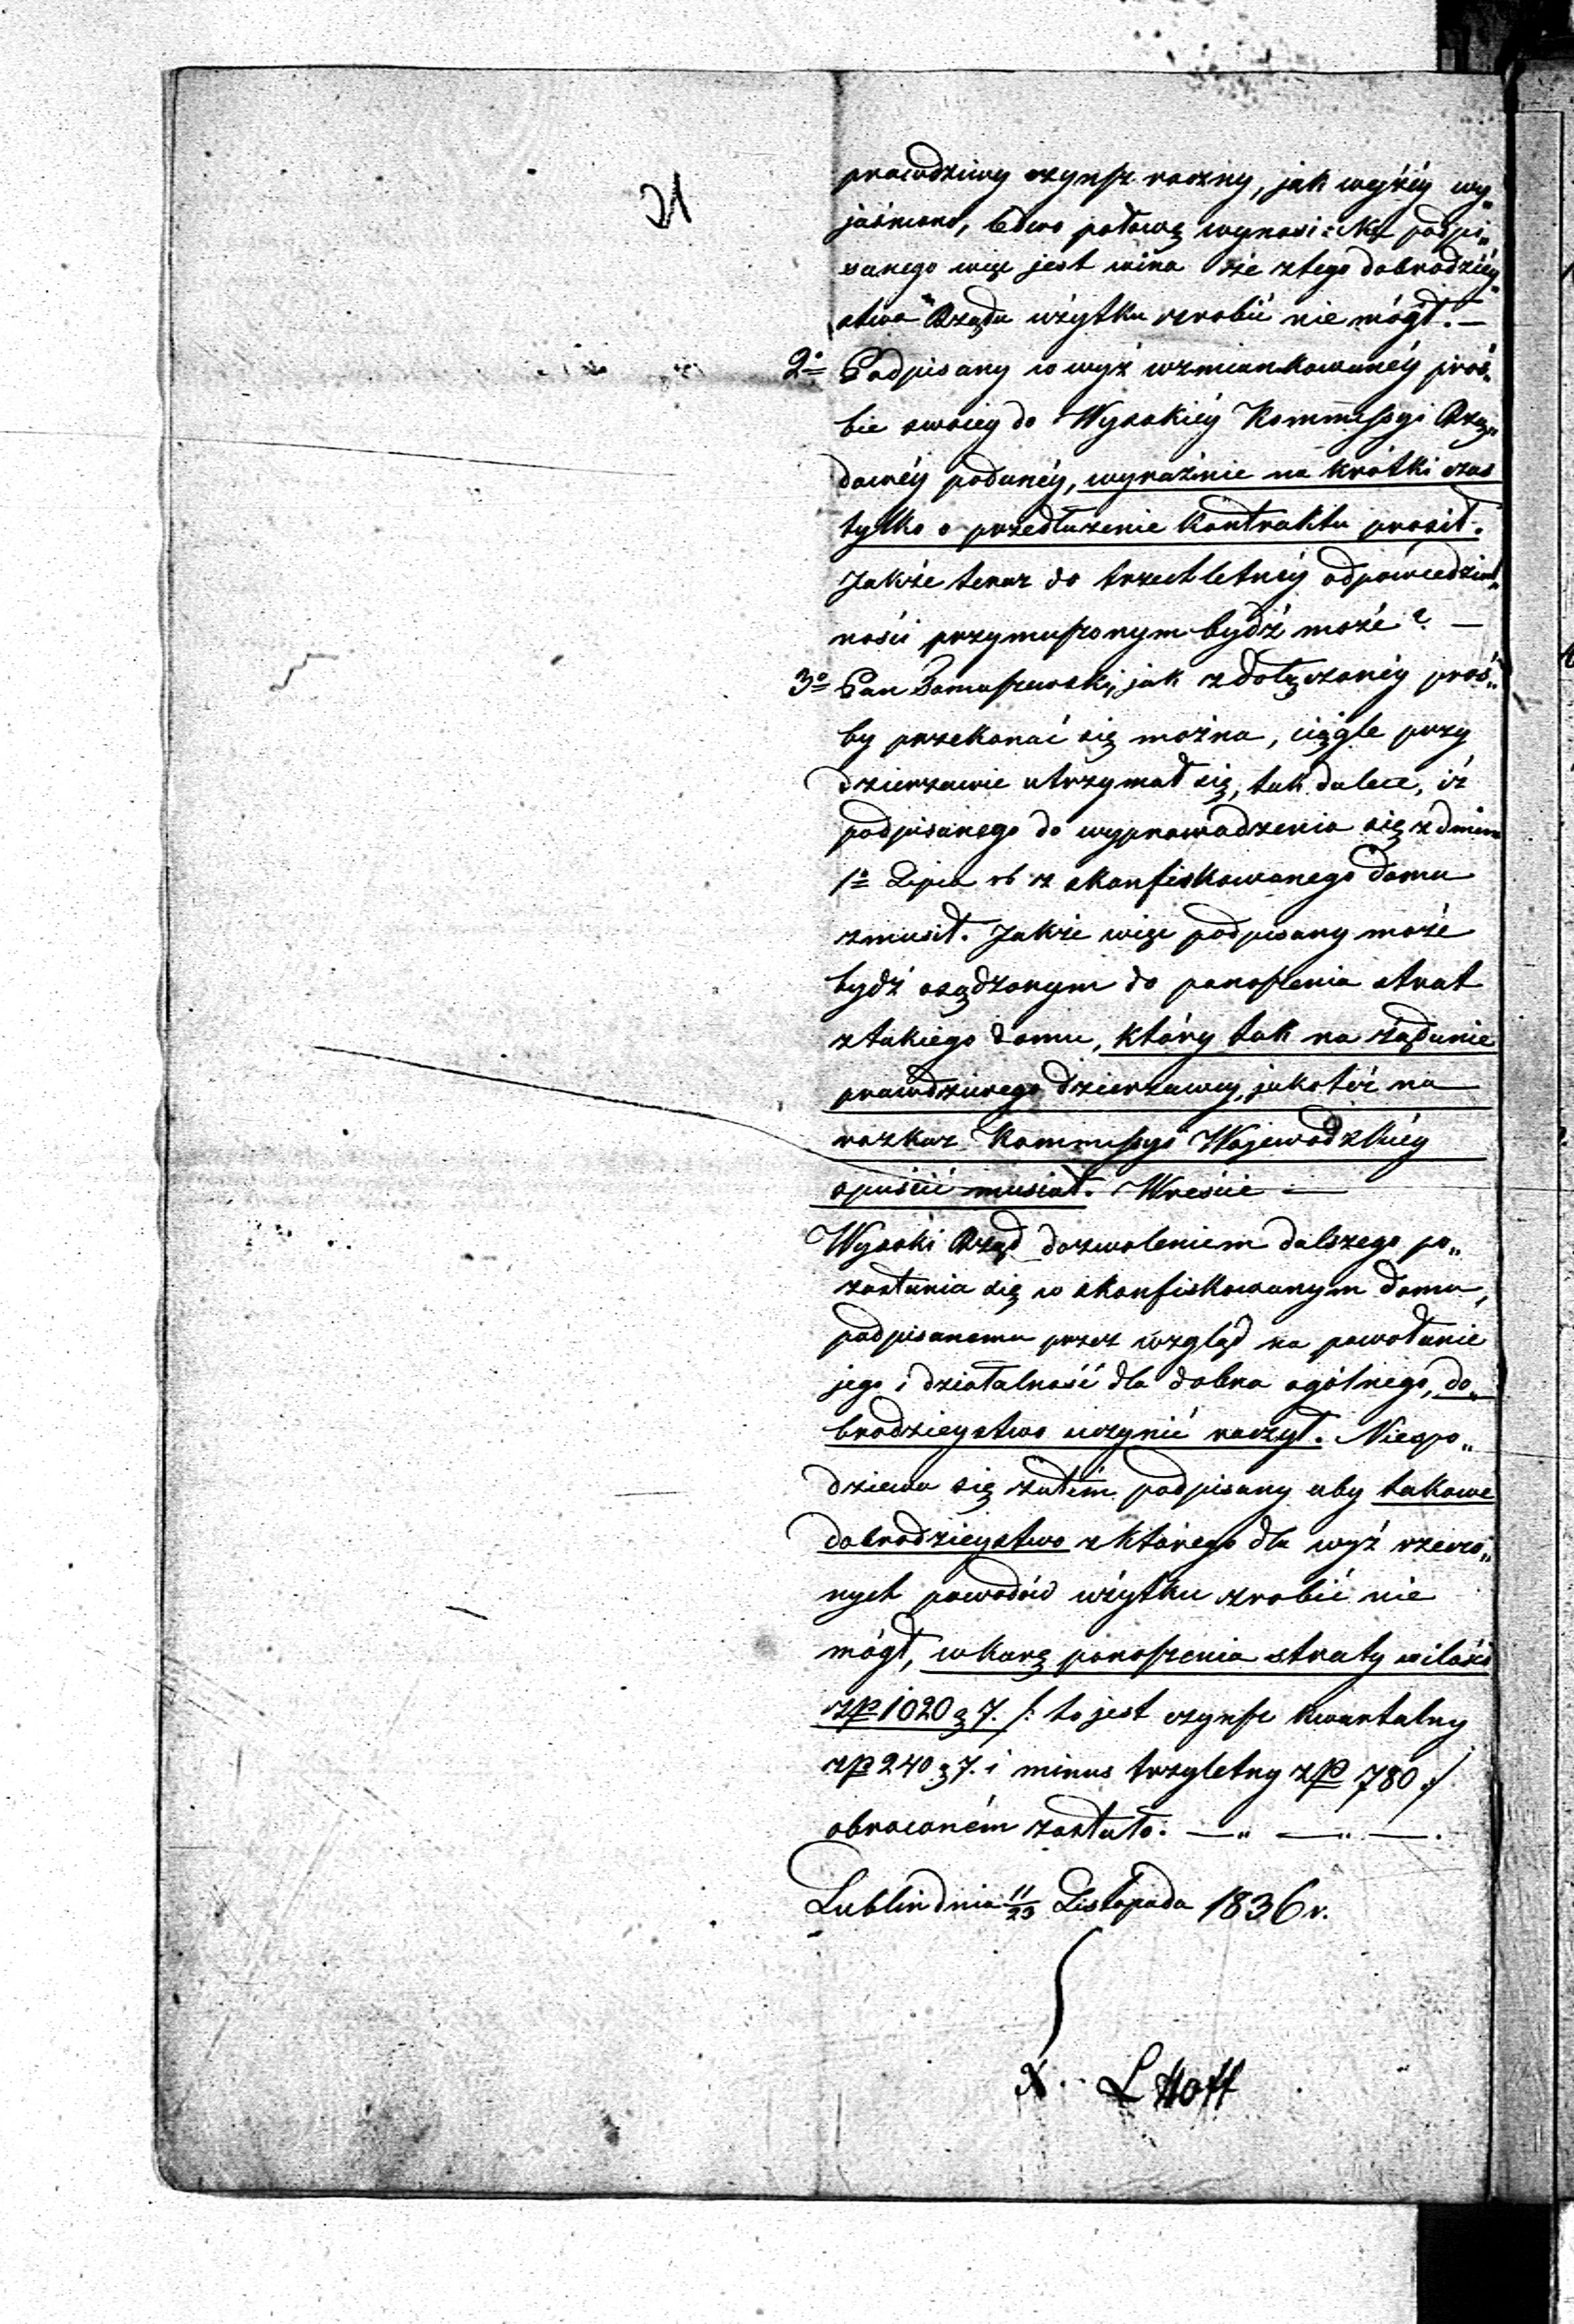 21
prawdziwy czynsz roczny, jak wyżéy wy„
jaśniono, ledwo połowę wynosi: Nie podpi„
sanego więc jest wina że z tego dobrodziéy„
stwa Rządu użytku zrobić nie mógł. —
2o Podpisany w wyż wzmiankowanéy proś„
bie swoiey do Wysokiéy Kommissyi Rzą„
dowéy podanéy, wyraźnie na krótki czas
tylko o przedłużenie kontraktu prosił.
Jakże teraz do trzechletniéy odpowiedzial„
ności przymuszonym bydź może? —
3o Pan Tomaszewski, jak z dołączonéy proś„
by przekonać się można, ciągle przy
dzierzawie utrzymał się, tak dalece, iż
podpisanego do wyprowadzenia się z dniem
1o Lipca rb z skonfiskowanego domu
zmusił. Jakże więc podpisany może
bydź osądzonym do ponoszenia strat
z takiego domu, który tak na żądanie
prawdziwego dzierzawcy, jakoteż na
rozkaz Kommissyi Wojewódzkiéy
opuścić musiał. Wreście —
Wysoki Rząd dozwoleniem dalszego po„
zostania się w skonfiskowanym domu,
podpisanemu przez wzgląd na powołanie
jego i działalność dla dobra ogólnego, do„
brodzieystwo uczynić raczył. Niespo„
dziewa się zatém podpisany aby takowe
dobrodzieystwo z którego dla wyż rzeczo„
nych powodów użytku zrobić nie
mógł, w karę ponoszenia straty w ilości
zp 1020 g 7. /: to jest czynsz kwartalny
zp 240 g 7. i minus trzyletny zp 780 :/
obrocaném zostało. —„ —„ —.
Lublin dnia 11/23 Listopada 1836 r.
X. L Hoff